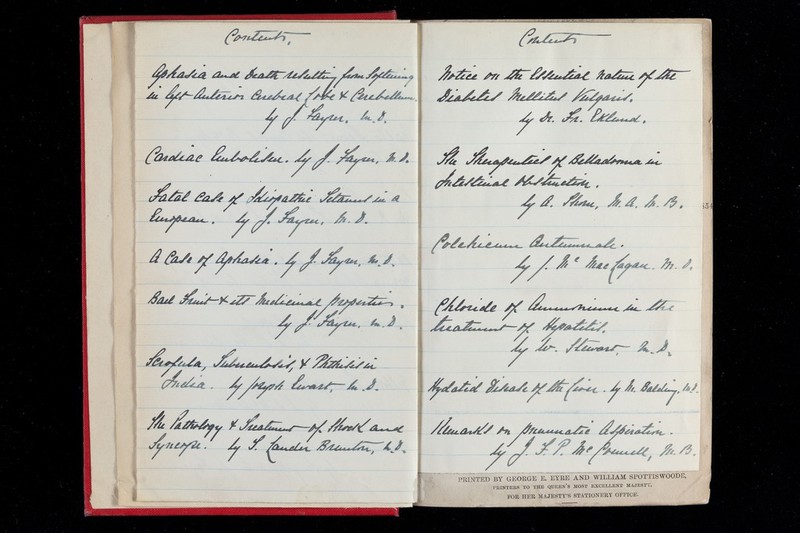 Contents.
Aphasia and Death resulting from Softening
in left Anterior Cerebral Lobe & Cerebellum
by J. Fayrer, M.D.
Cardiac Embolism. by J. Fayrer, M.D.
Fatal Case of Idiopathic Tetanus in a
European. by J. Fayrer, M.D.
A Case of Aphasia. by J. Fayrer, M.D.
Bael Fruit & its Medicinal properties.
by J. Fayrer. M.D.
Scrofula, Tuberculosis, & Phthisis in
India. by Joseph Ewart, M.D.
The Pathology & Treatment of Shock and
Syncope. by T. Lauder Brunton, M.D.
Contents
Notice on the Essential Nature of the
Diabetes Mellitus Vulgaris.
by Dr. Fr. Eklund.
The Therapeutics of Belladonna in
Intestinal Obstruction.
by A. Thom, M.A. M.B.
Colchicum Autumnale.
by J. Mc MacLagan. M.D.
Chloride of Ammonium in the
treatment of Hepatitis.
by W. Stewart, M.D.
Hydatid Disease of the Liver. by M. Balding, M.D.
Remarks on pneumatic Aspiration.
by J. F. P. McConnell, M.B.
PRINTED BY GEORGE E. EYRE AND WILLIAM SPOTTISWOODE,
PRINTERS TO THE QUEEN'S MOST EXCELLENT MAJESTY.
FOR HER MAJESTY'S STATIONERY OFFICE.